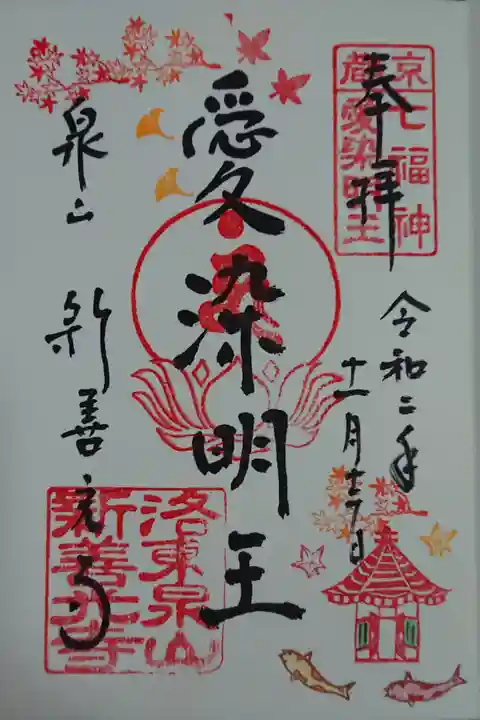 奉拝
京都七福神
愛染明王
令和二年
十一月十七日
愛染明王
泉山
新善光寺
洛東泉山
新善光寺